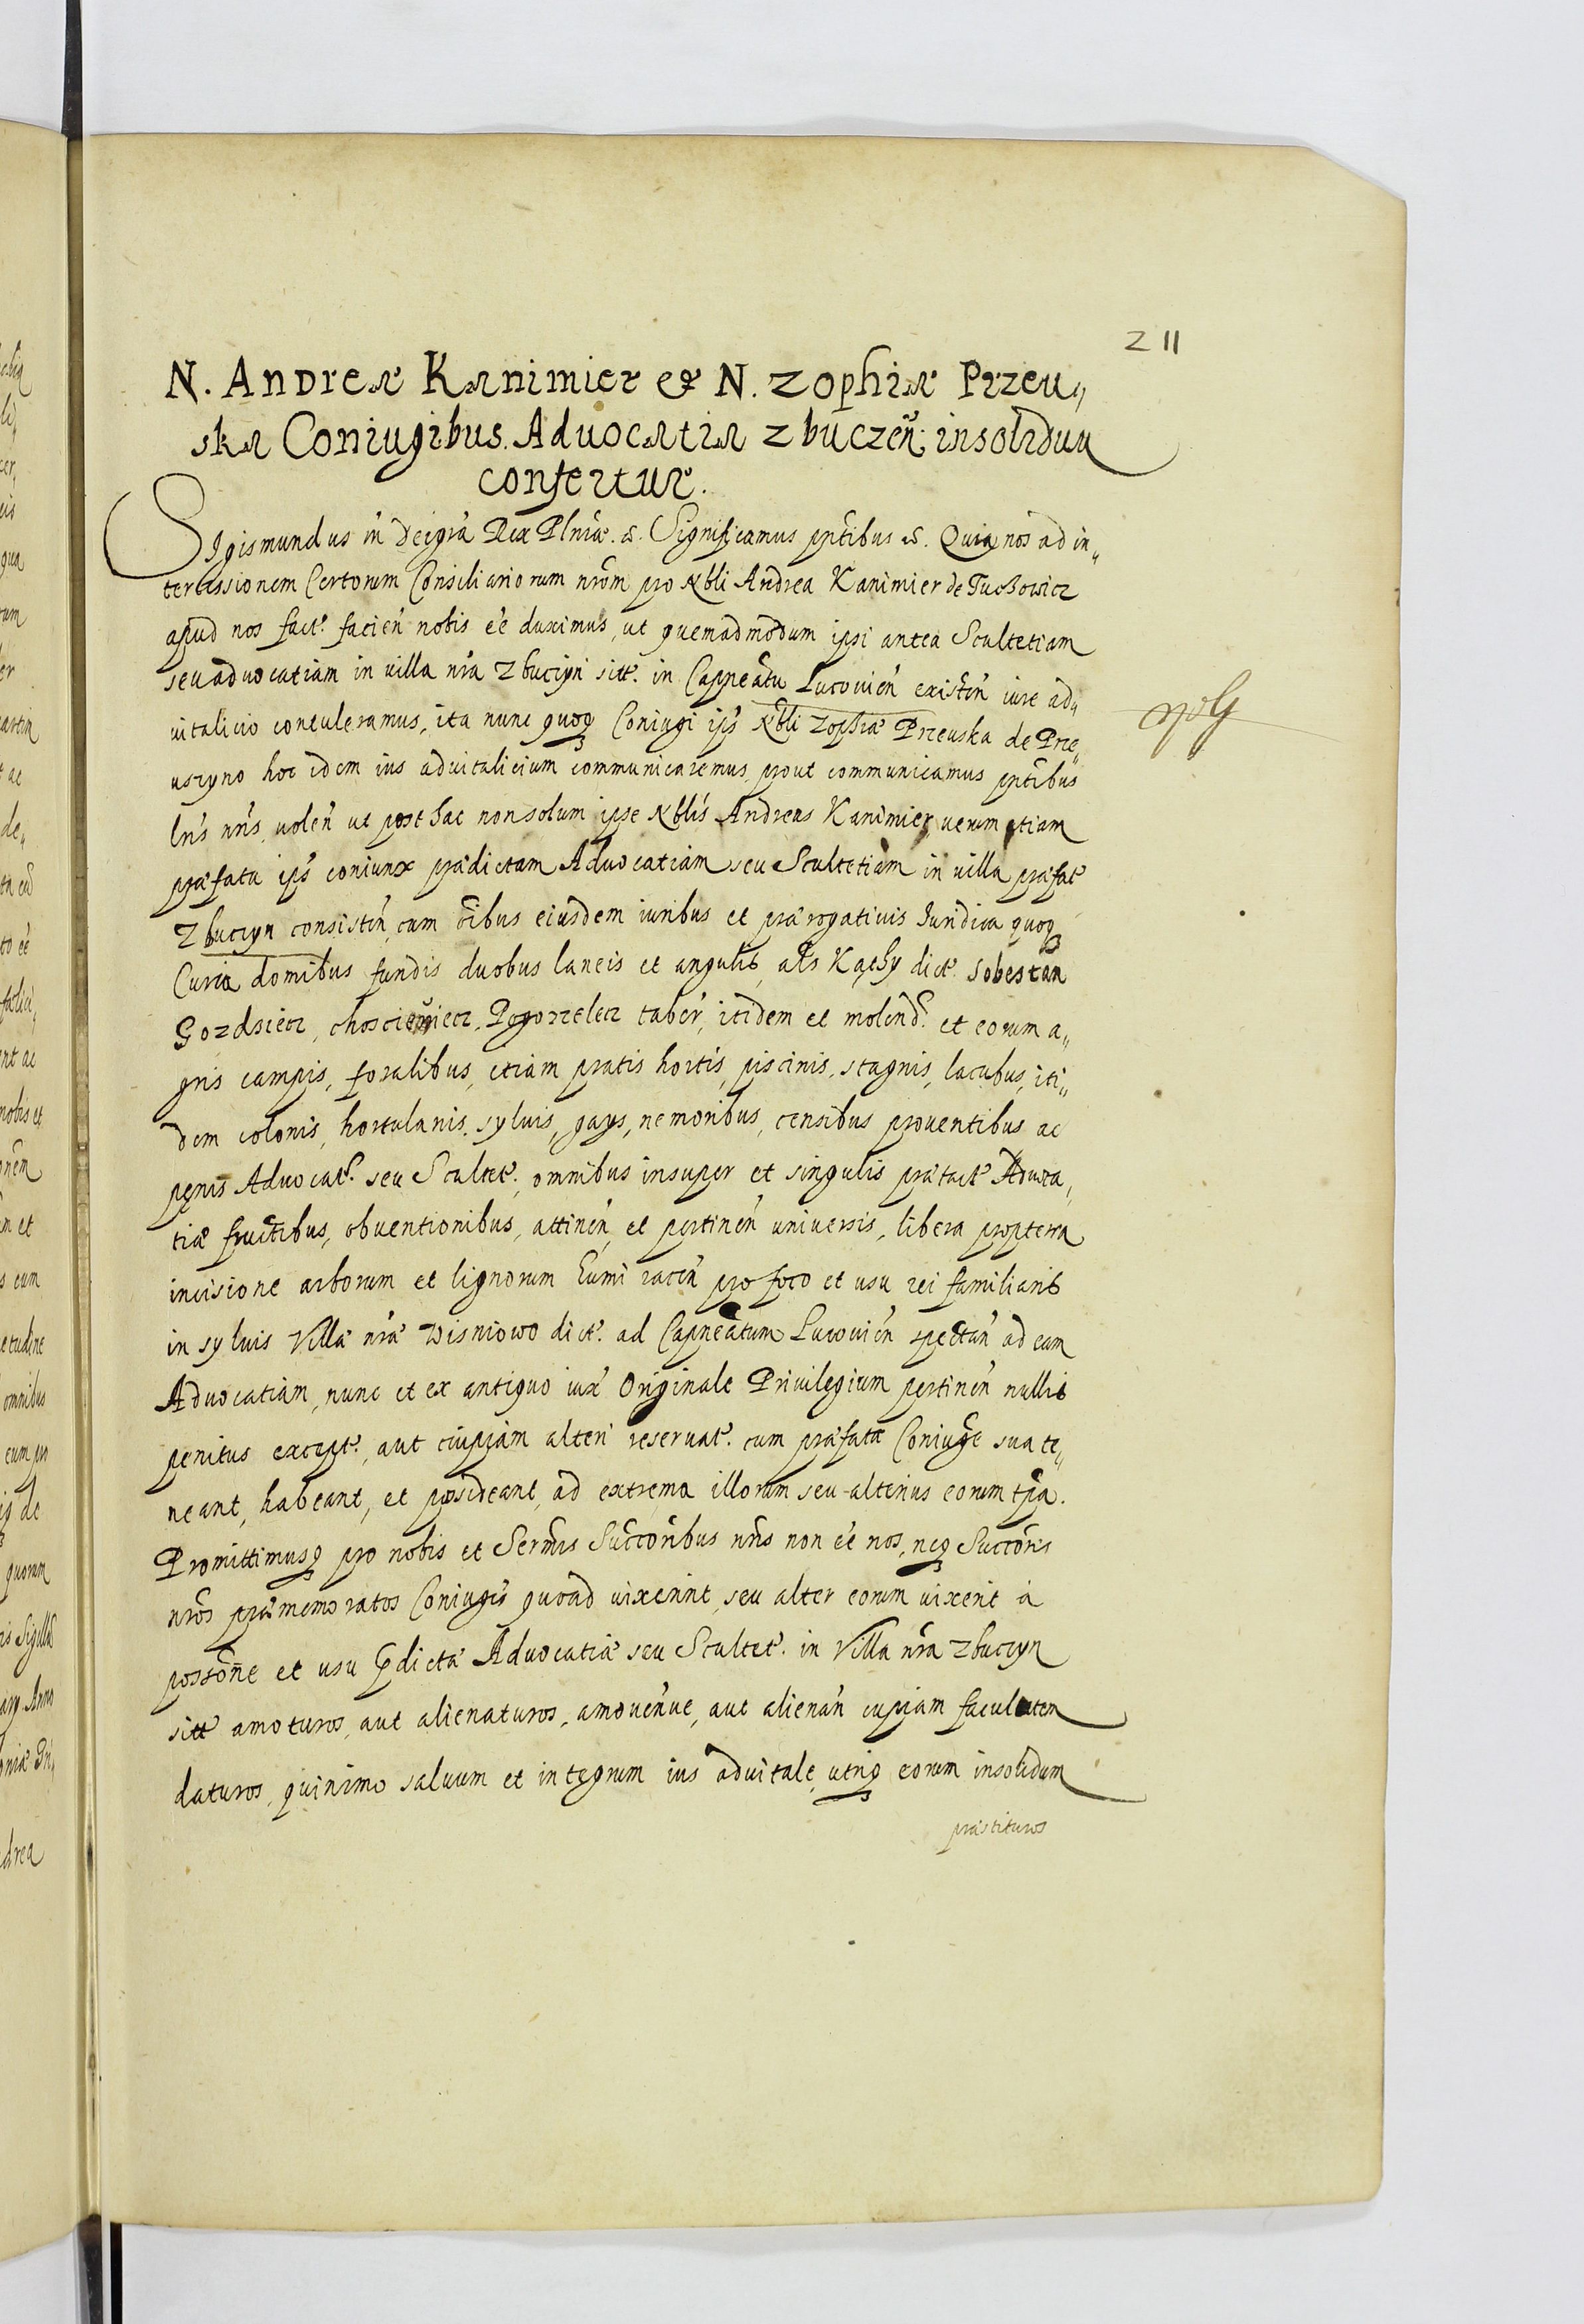 211
N. Andreæ Kanimier et N. Zophiæ Przeu„
ska Coniugibus. Aduocatia Zbuczen̄. insolidum
confertur.
Sigismundus iii deigra Rex Plniæ. &. Significamus pntibus &. Quia nos ad in„
tercessionem Certorum Consiliariorum nrōm pro Nbli Andrea Kanimier de Tuchowicz
apud nos fact. facien̄ nobis ee duximus, ut quemadmodum ipsi antea Scultetiam
seu aduocatiam in uilla nra Zbuczyn sitt. in Capneātu Lucouien̄ existen̄ iure ad„
uitalicio contuleramus, ita nunc quoq Coniugi ips Nbli Zophiæ Przeuska de Prze„
uszyno hoc idem ius aduitalicium communicaremus prout communicamus pntibus
lris nris uolen̄ ut post hac non solum ipse Nblis Andreas Kanimier, uerum etiam
præfata ips coniunx prædictam Aduocatiam seu Scultetiam in uilla præfat
Zbuczyn consisten̄, cum oibus eiusdem iuribus et prærogatiuis Juridica quoq
Curia domibus fundis duobus laneis et angulis als Kąthy dict. Sobestan
Gozdsiecz, chosciewiecz, Pogorzelecz taber, itidem et molend. et eorum a„
gris campis, foralibus, etiam pratis hortis, piscinis, stagnis, lacubus, iti„
dem colonis, hortulanis. syluis, gays, nemoribus, censibus prouentibus ac
penis Aduocat. seu Scultet., omnibus insuper et singulis prætact Aduoca„
tiæ fructibus, obuentionibus, attinen̄, et pertinen̄ uniuersis, libera propterea
incisione arborum et lignorum humi iacen̄ pro foco et usu rei familiaris
in syluis Villæ nræ Wisniowo dict. ad Capneatum Lucouien̄ spectan̄ ad eam
Aduocatiam, nunc et ex antiquo iux Originale Priuilegium pertinen̄ nullis
penitus except., aut cuipiam alteri reseruat. cum præfata Coniuge sua te„
neant, habeant, et posideant, ad extrema illorum seu alterius eorum tpa.
Promittimusq pro nobis et Sermis Succoribus nris non ee nos, neq Succoris
nros præmemoratos Coniuges quoad uixerint, seu alter eorum uixerit à
possone et usu pdictæ Aduocatiæ seu Scultet. in Villa nra Zbuczyn
sitt amoturos, aut alienaturos, amouen̄ue, aut alienan̄ cupiam facultatem
daturos, quinimo saluum et integrum ius aduitale, utriq eorum insolidum
præstituros